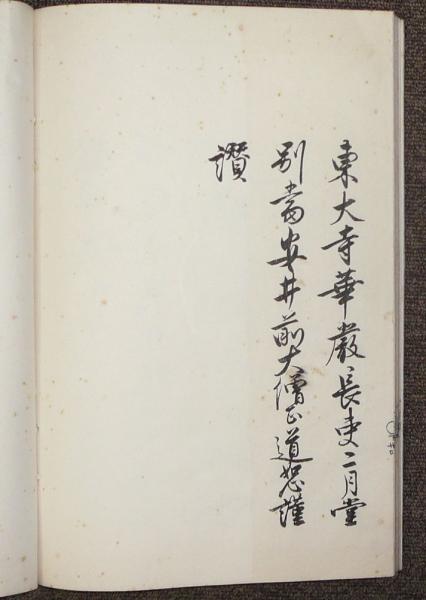 東大寺華嚴長吏二月堂
別當安井前大僧正道恕謹
讃